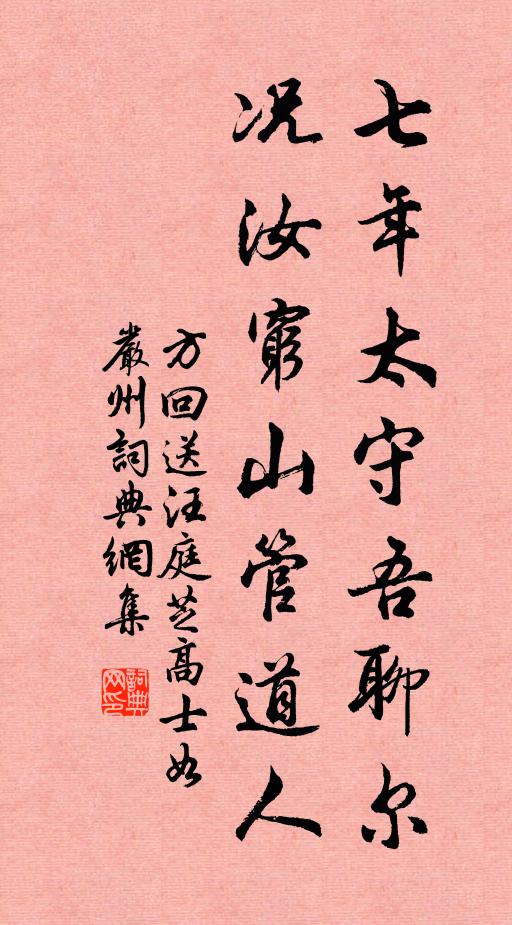 七年太守吾聊尔
况汝窮山管道人
方回送汪庭芝高士如
嚴州詞典網集
詞典网印